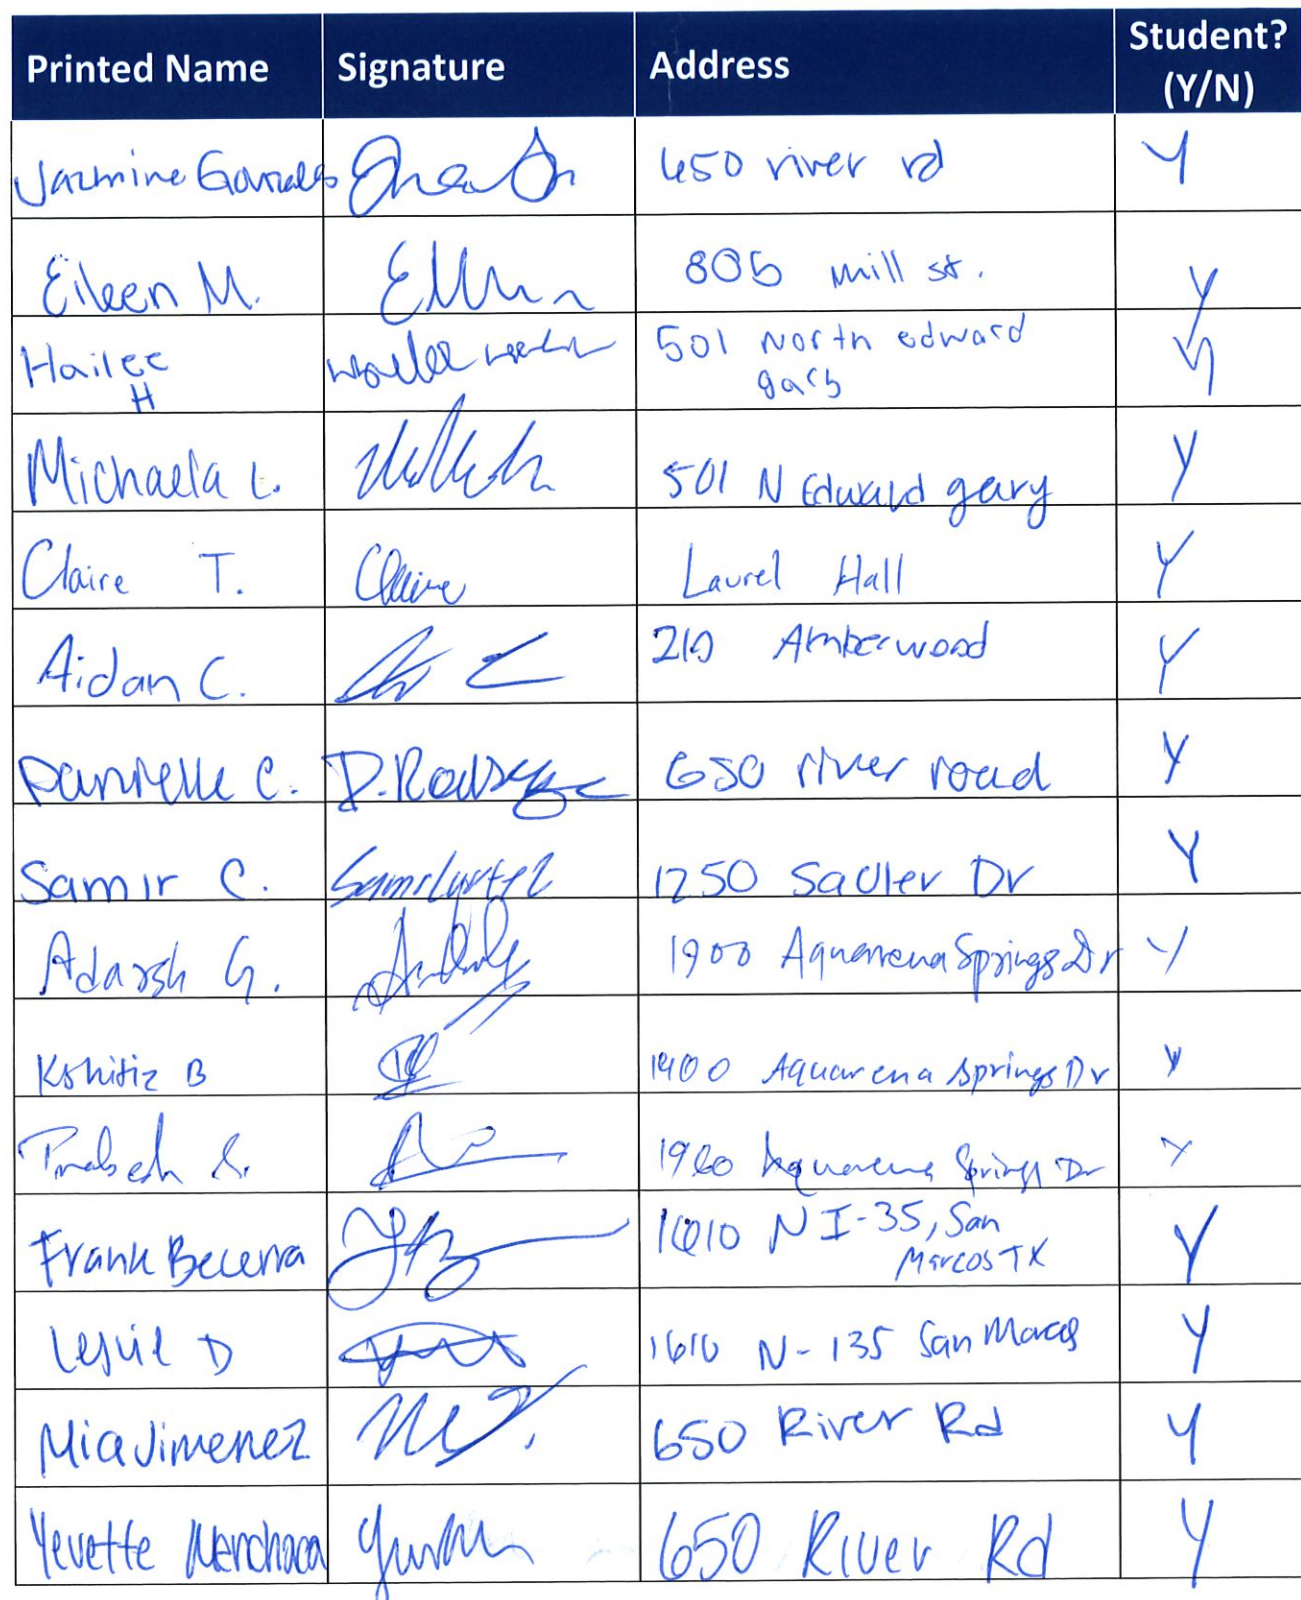 Printed Name Signature Address Student? (Y/N)
Jazmine Gonzales 650 river rd Y
Eileen M. 805 mill st. Y
Hailee H 501 North edward gary Y
Michaela L. 501 N Edward gary Y
Claire T. Claire Laurel Hall Y
Aidan C. 210 Amberwood Y
Danielle C. 650 river road Y
Samir C. 1250 Sadler Dr Y
Adarsh G. 1900 Aquarena Springs Dr Y
Kshitiz B 1900 Aquarena Springs Dr Y
S. 1900 Aquarena Springs Dr Y
Frank Becerra 1610 N I-35, San Marcos TX Y
Leslie D 1610 N-135 San Marcos Y
Mia Jimenez 650 River Rd Y
Yevette Menchaca 650 River Rd Y